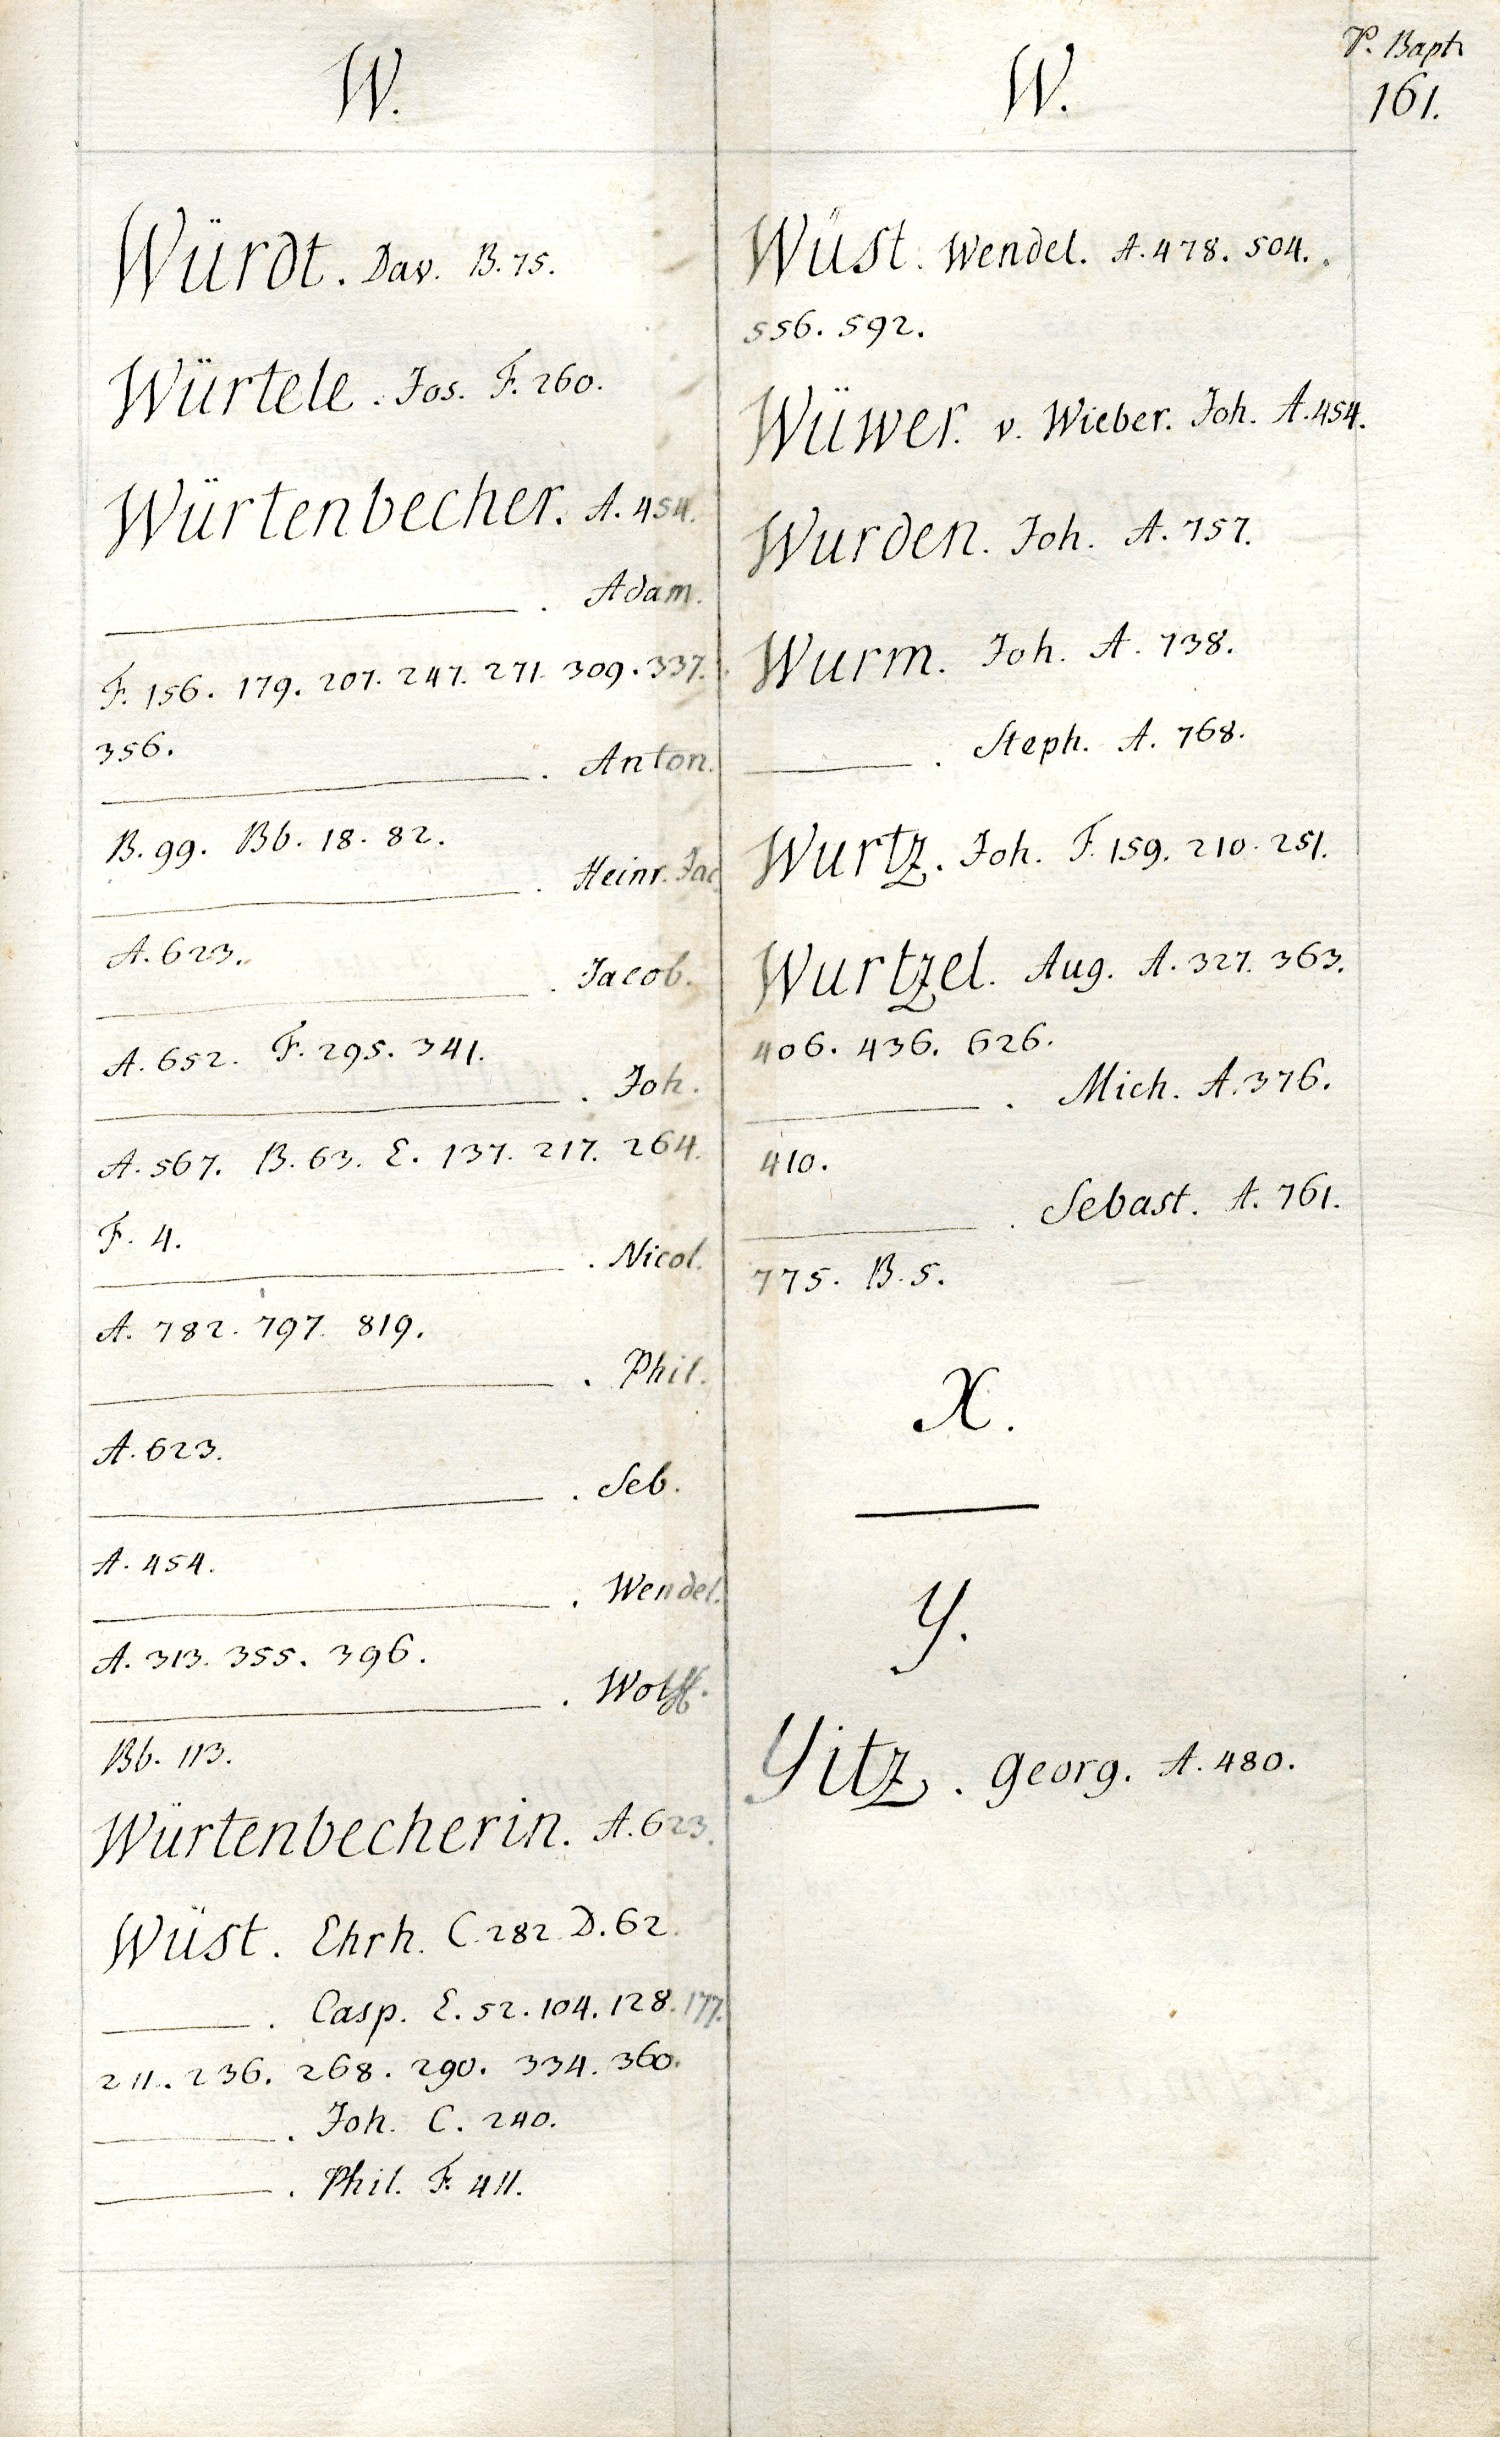 P. Bapt.
161.
W.
Würdt. Dav. B. 75.
Würtele. Jos. F. 260.
Würtenbecher. A. 454.
. Adam.
F. 156. 179. 207. 247. 271. 309. 337.
356.
. Anton.
B. 99. Bb. 18. 82.
. Heinr. Jac
A. 623.
. Jacob.
A. 652. F. 295. 341.
. Joh.
A. 567. B. 63. E. 137. 217. 264.
F. 4.
. Nicol.
A. 782. 797. 819.
. Phil.
A. 623.
. Seb.
A. 454.
. Wendel.
A. 313. 355. 396.
. Wolff.
Bb. 113.
Würtenbecherin. A. 623.
Wüst. Ehrh. C. 282. D. 62.
. Casp. E. 52. 104. 128. 177.
211. 236. 268. 290. 334. 360.
. Joh. C. 240.
. Phil. F. 411.
W.
Wüst. Wendel. A. 478. 504.
556. 592.
Wüwer. v. Wieber. Joh. A. 454.
Wurden. Joh. A. 757.
Wurm. Joh. A. 738.
. Steph. A. 768.
Wurtz. Joh. F. 159. 210. 251.
Wurtzel. Aug. A. 327. 363.
406. 436. 626.
. Mich. A. 376.
410.
. Sebast. A. 761.
775. B. 5.
X.
Y.
Yitz. Georg. A. 480.